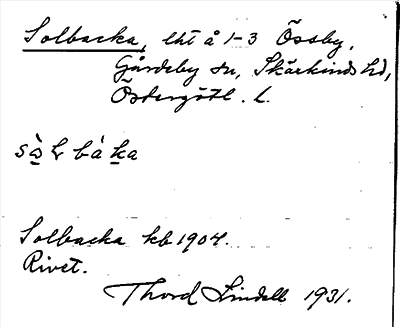 Solbacka, lht å 1-3 Össby,
Gårdeby sn, Skärkinds hd,
Östergötl. l.
Solbacka kb 1904.
Rivet.
Thord Lindell 1931.